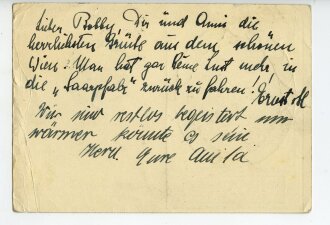 Lieber Bobby, Dir und Anni die
herzlichsten Grüße aus dem schönen
Wien. Man hat gar keine Lust mehr, in
die „Saarpfalz" zurück zu fahren! Ernst
Wir sind restlos begeistert nur
wärmer könnte es sein
Herzl. Eure